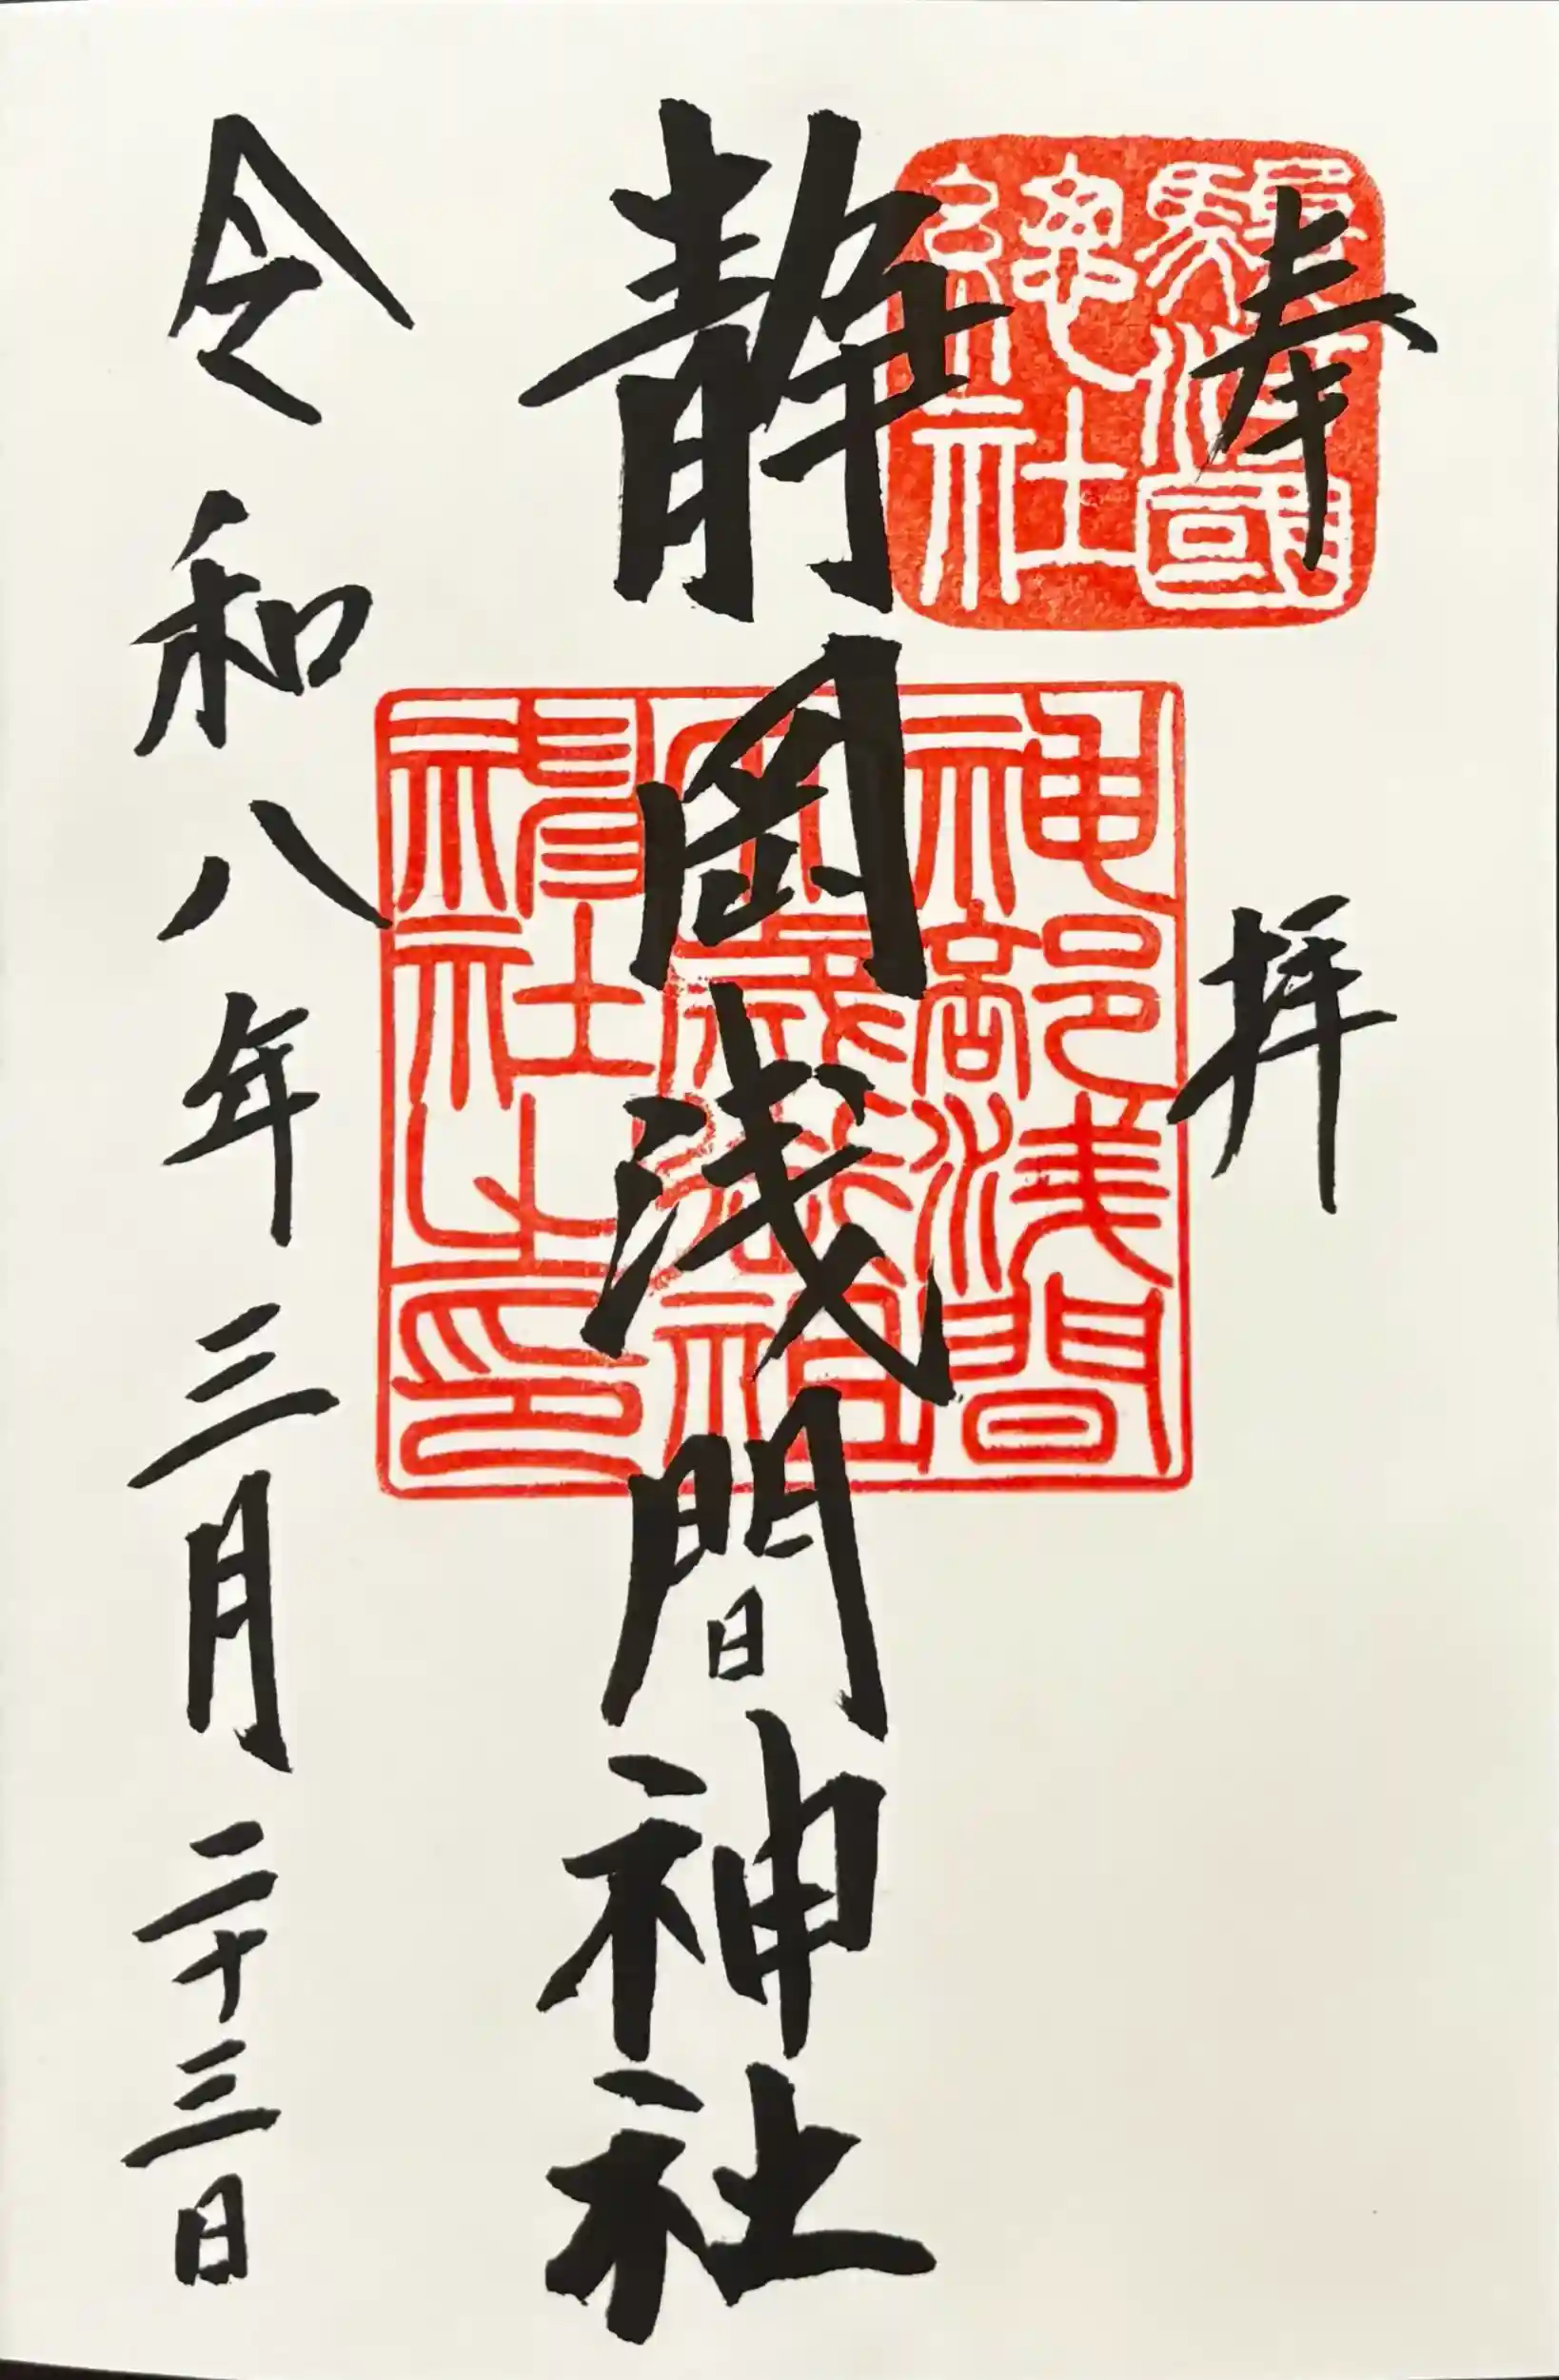 奉拝
駿河國
総社
静岡浅間神社
神部浅間
大歳御祖
神社之印
令和八年三月二十三日